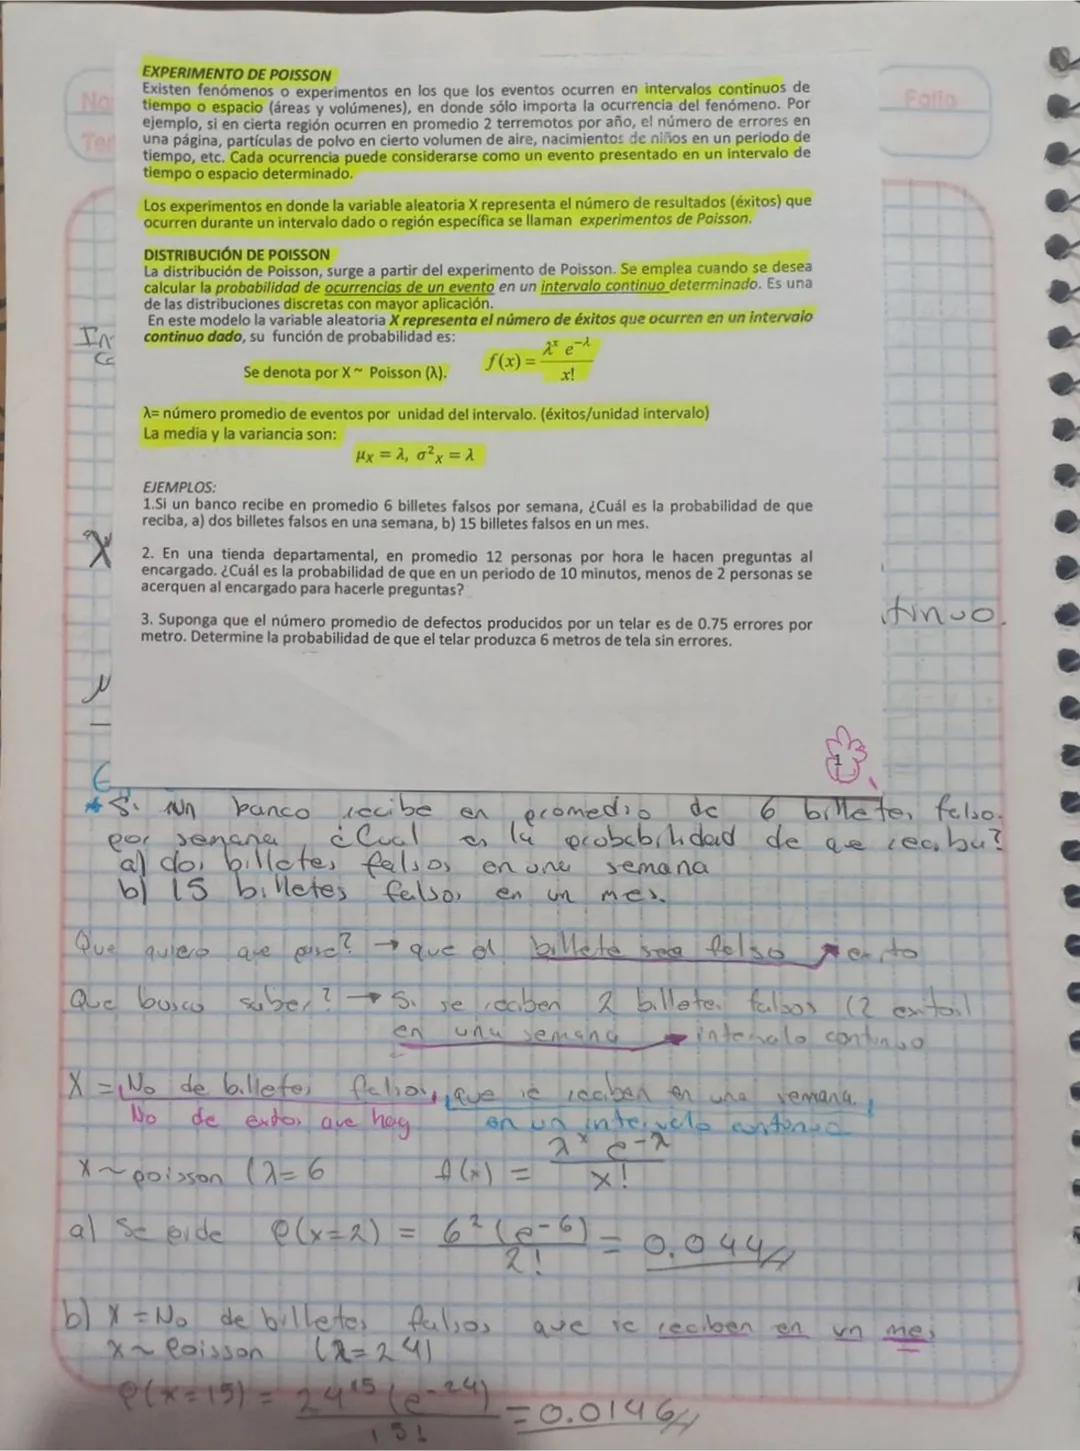 No
Folio
Te
EXPERIMENTO DE POISSON
Existen fenómenos o experimentos en los que los eventos ocurren en intervalos continuos de
tiempo o espacio (áreas y volúmenes), en donde sólo importa la ocurrencia del fenómeno. Por
ejemplo, si en cierta región ocurren en promedio 2 terremotos por año, el número de errores en
una página, partículas de polvo en cierto volumen de aire, nacimientos de niños en un periodo de
tiempo, etc. Cada ocurrencia puede considerarse como un evento presentado en un intervalo de
tiempo o espacio determinado.
Los experimentos en donde la variable aleatoria X representa el número de resultados (éxitos) que
ocurren durante un intervalo dado o región específica se llaman experimentos de Poisson.
DISTRIBUCIÓN DE POISSON
La distribución de Poisson, surge a partir del experimento de Poisson. Se emplea cuando se desea
calcular la probabilidad de ocurrencias de un evento en un intervalo continuo determinado. Es una
de las distribuciones discretas con mayor aplicación.
En este modelo la variable aleatoria X representa el número de éxitos que ocurren en un intervalo
continuo dado, su función de probabilidad es:
Se denota por X ~ Poisson (λ). f(x) = λˣ e^-λ / x!
λ= número promedio de eventos por unidad del intervalo. (éxitos/unidad intervalo)
La media y la variancia son:
μx = λ, σ²x = λ
EJEMPLOS:
1.Si un banco recibe en promedio 6 billetes falsos por semana, ¿Cuál es la probabilidad de que
reciba, a) dos billetes falsos en una semana, b) 15 billetes falsos en un mes.
2. En una tienda departamental, en promedio 12 personas por hora le hacen preguntas al
encargado. ¿Cuál es la probabilidad de que en un periodo de 10 minutos, menos de 2 personas se
acerquen al encargado para hacerle preguntas?
tinuo.
3. Suponga que el número promedio de defectos producidos por un telar es de 0.75 errores por
metro. Determine la probabilidad de que el telar produzca 6 metros de tela sin errores.
1
Si un banco recibe en promedio de 6 billetes falso.
por semana ¿Cual es la probabilidad de que reciba?
a) dos billetes falsos en una semana
b) 15 billetes falsos en un mes.
Que quiero que pase? → que el billete sea falso → exito
Que busco saber? → Si se reciben 2 billetes falsos (2 exitos)
en una semana → intervalo continuo
X = No de billetes falsos, que se reciben en una semana
No de exitos que hay en un intervalo continuo
x ~ poisson (λ=6 f(x) = λˣ e^-λ / x!
a) Se pide P(x=2) = 6² (e^-6) / 2! = 0.044
b) X = No de billetes falsos que se reciben en un mes
x ~ Poisson (λ=24)
P(x=15) = 24^15 (e^-24) / 15! = 0.0146